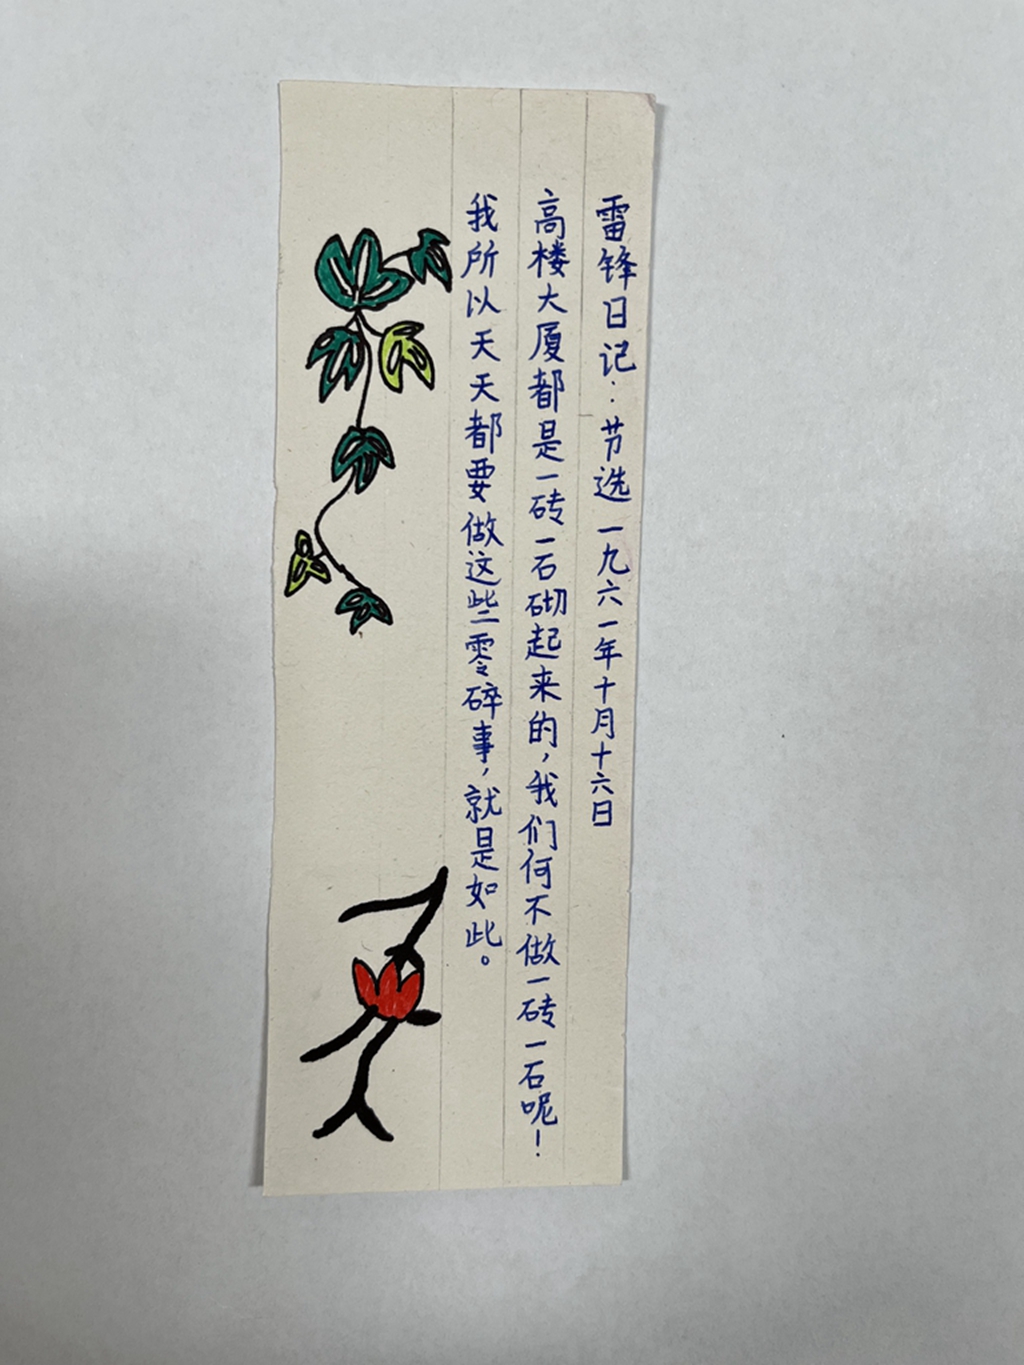 雷锋日记：节选一九六一年十月十六日
高楼大厦都是一砖一石砌起来的，我们何不做一砖一石呢！
我所以天天都要做这些零碎事，就是如此。